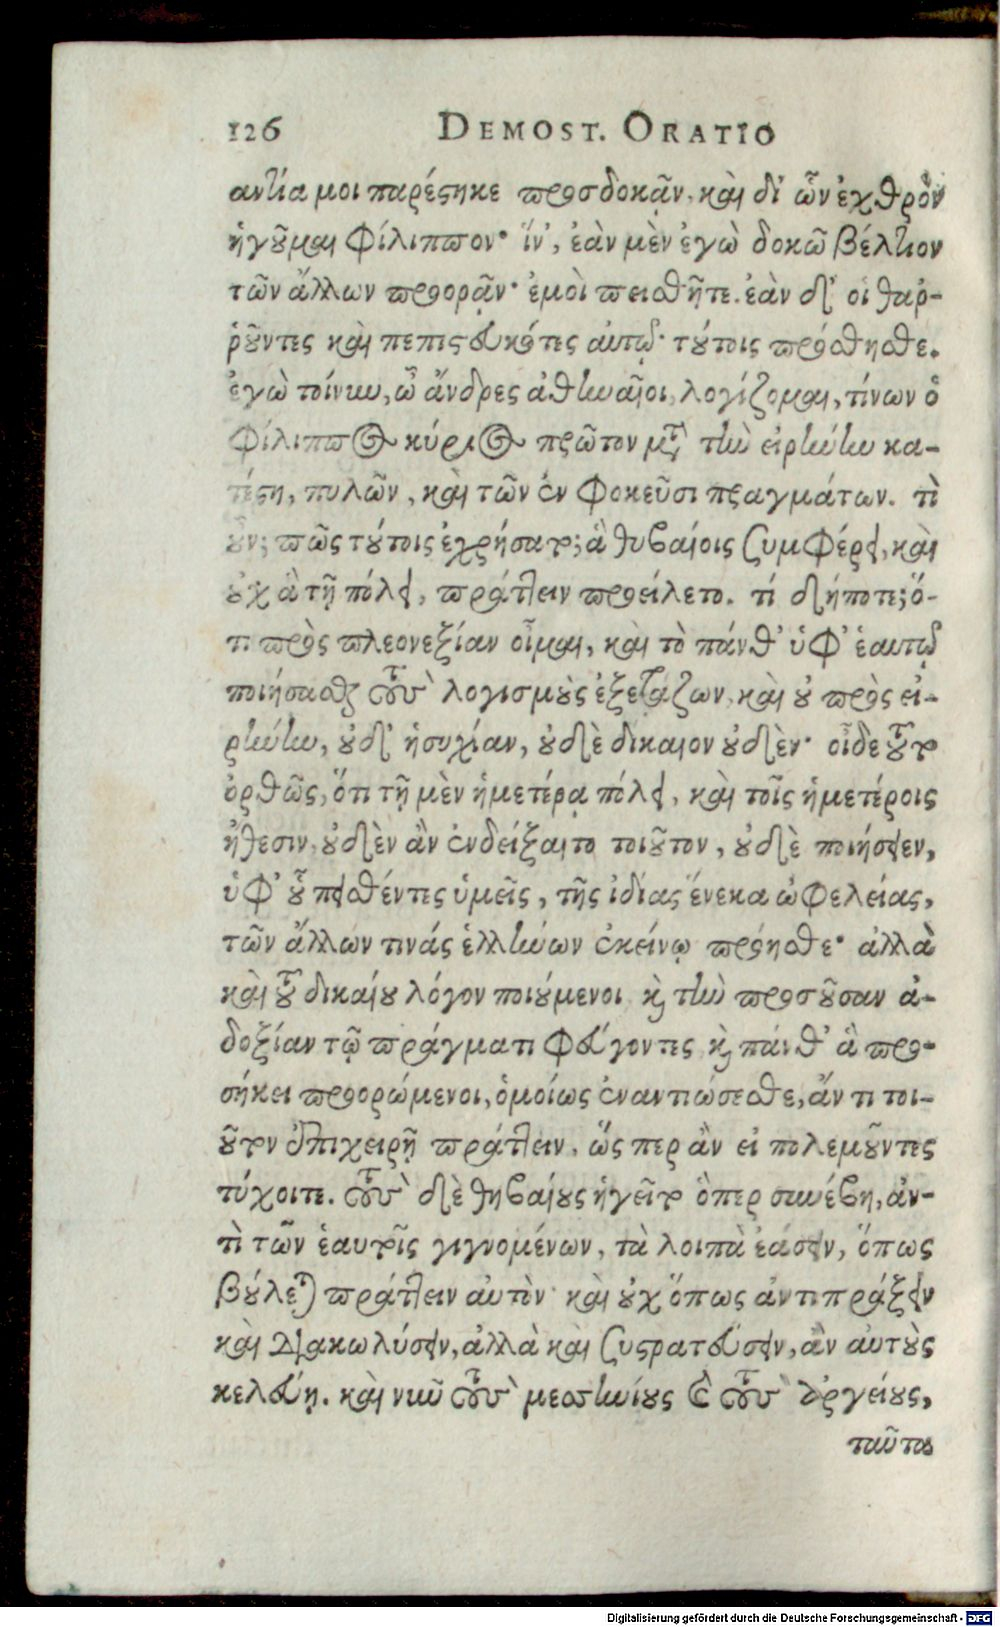 126 DEMOST. ORATIO
αντία μοι παρέστηκε προσδοκᾷν, καὶ δι' ὧν ἐχθρὸν
ἡγοῦμαι Φίλιππον· ἵν', ἐὰν μὲν ἐγὼ δοκῶ βέλτιον
τῶν ἄλλων προορᾷν· ἐμοὶ πεισθῆτε. ἐὰν δ' οἱ θαρ-
ῥοῦντες καὶ πεπιστευκότες αὐτῷ· τούτοις πρόσθησθε.
ἐγὼ τοίνυν, ὦ ἄνδρες ἀθηναῖοι, λογίζομαι, τίνων ὁ
Φίλιππος κύριος πρῶτον μετὰ τὴν εἰρήνην κα-
τέστη, πυλῶν, καὶ τῶν ἐν Φοκεῦσι πραγμάτων. τὶ
οὖν; πῶς τούτοις ἐχρήσατο; ἃ θηβαίοις συμφέρει, καὶ
οὐχ ἃ τῇ πόλει, πράττειν προείλετο. τί δήποτε; ὅ-
τι πρὸς πλεονεξίαν οἶμαι, καὶ τὸ πάνθ' ὑφ' ἑαυτῷ
ποιήσασθαι τοὺς λογισμοὺς ἐξετάζων, καὶ οὐ πρὸς εἰ-
ρήνην, οὐδ' ἡσυχίαν, οὐδὲ δίκαιον οὐδὲν· οἶδε τοῦτο
ὀρθῶς, ὅτι τῇ μὲν ἡμετέρᾳ πόλει, καὶ τοῖς ἡμετέροις
ἤθεσιν, οὐδὲν ἂν ἐνδείξαιτο τοιοῦτον, οὐδὲ ποιήσειεν,
ὑφ' οὗ πεισθέντες ὑμεῖς, τῆς ἰδίας ἕνεκα ὠφελείας,
τῶν ἄλλων τινάς ἑλλήνων ἐκείνῳ πρόησθε· ἀλλὰ
καὶ τοῦ δικαίου λόγον ποιούμενοι καὶ τὴν προσοῦσαν ἀ-
δοξίαν τῷ πράγματι φεύγοντες καὶ πάνθ' ἃ προ-
σήκει προορώμενοι, ὁμοίως ἐναντιώσεσθε, ἄν τι τοι-
οῦτον ἐπιχειρῇ πράττειν, ὥς περ ἂν εἰ πολεμοῦντες
τύχοιτε. τοὺς δὲ θηβαίους ἡγεῖτο ὅπερ συνέβη, ἀν-
τὶ τῶν ἑαυτοῖς γιγνομένων, τὰ λοιπὰ ἐάσειν, ὅπως
βούλεται πράττειν αὐτὸν· καὶ οὐχ ὅπως ἀντιπράξειν
καὶ διακωλύσειν, ἀλλὰ καὶ συστρατεύσειν, ἂν αὐτοὺς
κελεύῃ. καὶ νῦν τοὺς μεσσηνίους καὶ τοὺς ἀργείους,
ταῦτα
Digitalisierung gefördert durch die Deutsche Forschungsgemeinschaft - DFG